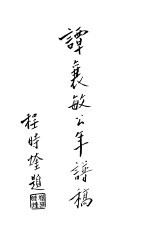 譚襄敏公年譜稿
程時煃題